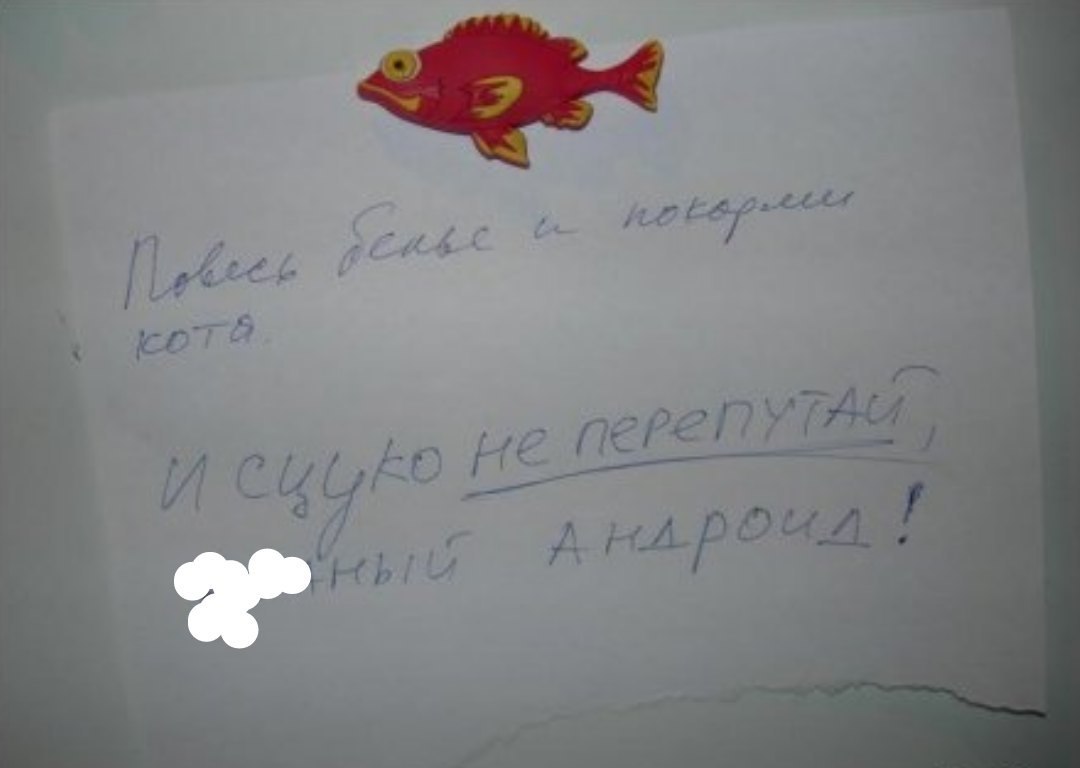 Повесь белье и покорми
кота.
И сцуко не перепутай,
нный Андроид!